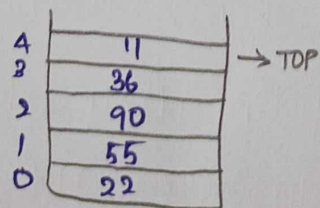 4 11 → TOP
3 36
2 90
1 55
0 22